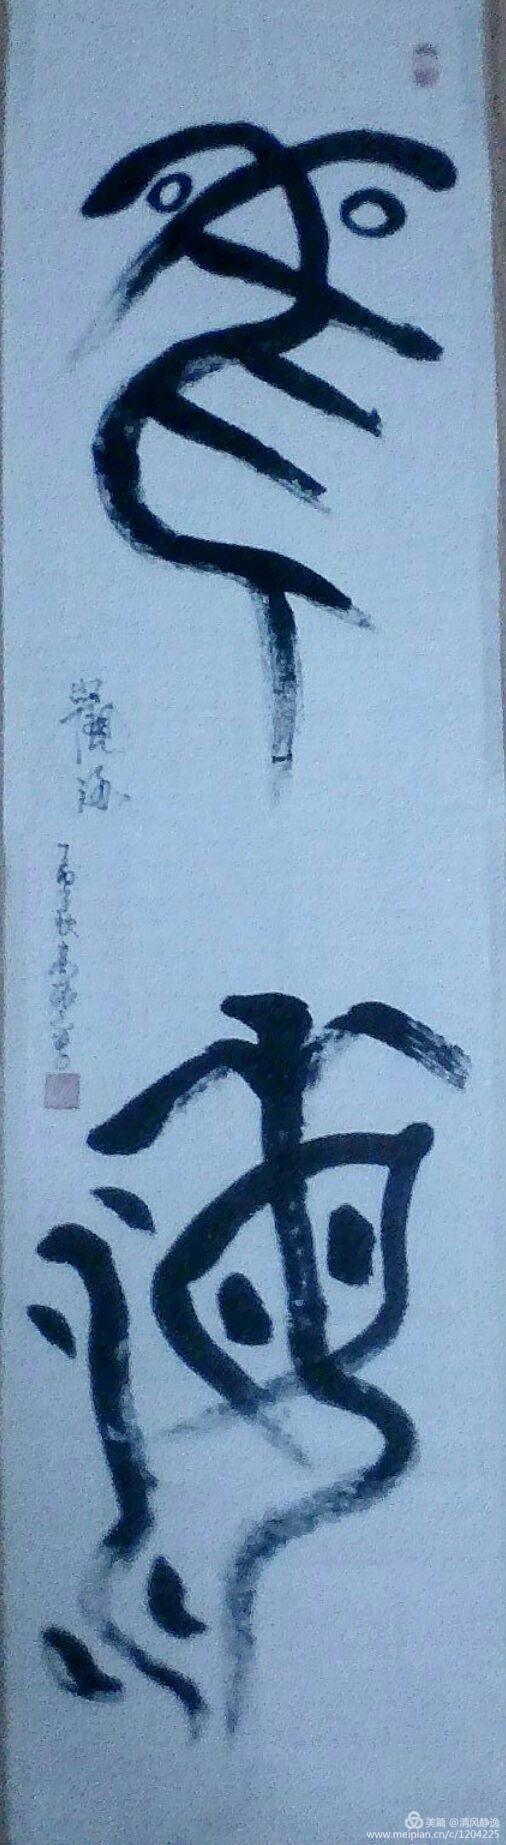 觀海
觀海
丁酉
美篇 @清风静逸
www.meipian.cn/c/1204225